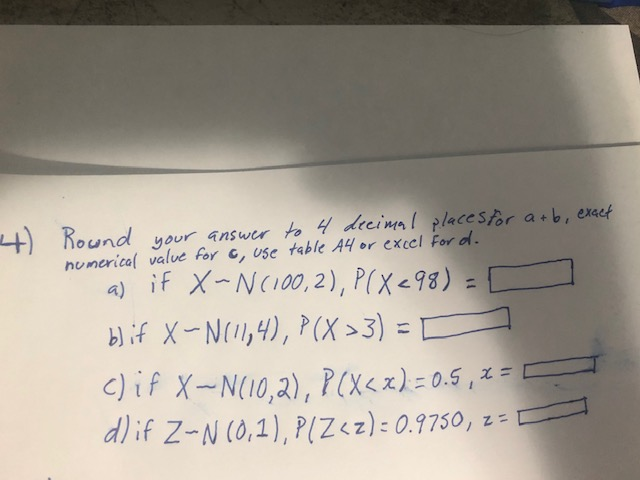 4) Round your answer to 4 decimal places for a+b, exact
numerical value for c, use table A4 or excel for d.
a) if X~N(100,2), P(X<98) =
b) if X~N(11,4), P(X>3) =
c) if X~N(10,2), P(X<x)=0.5, x=
d) if Z~N(0,1), P(Z<z)=0.9750, z=